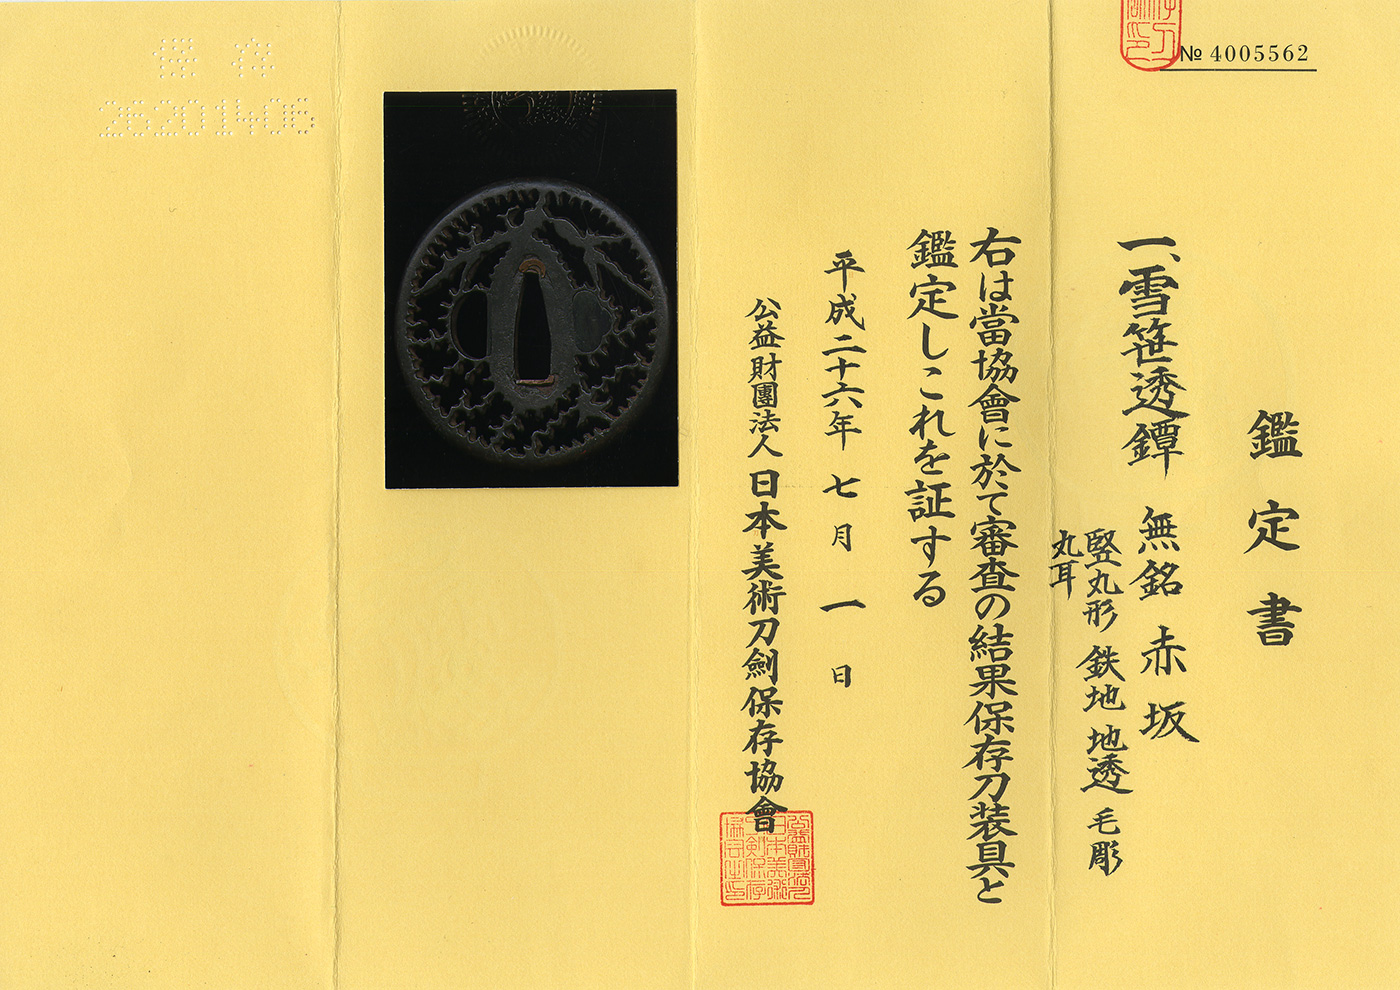 № 4005562
鑑定書
一、雪笹透鐔 無銘 赤坂
竪丸形 鉄地 地透 毛彫
丸耳
右は當協會に於て審査の結果保存刀装具と
鑑定しこれを証する
平成二十六年 七月 一日
公益財團法人 日本美術刀劍保存協會
保存
26201406